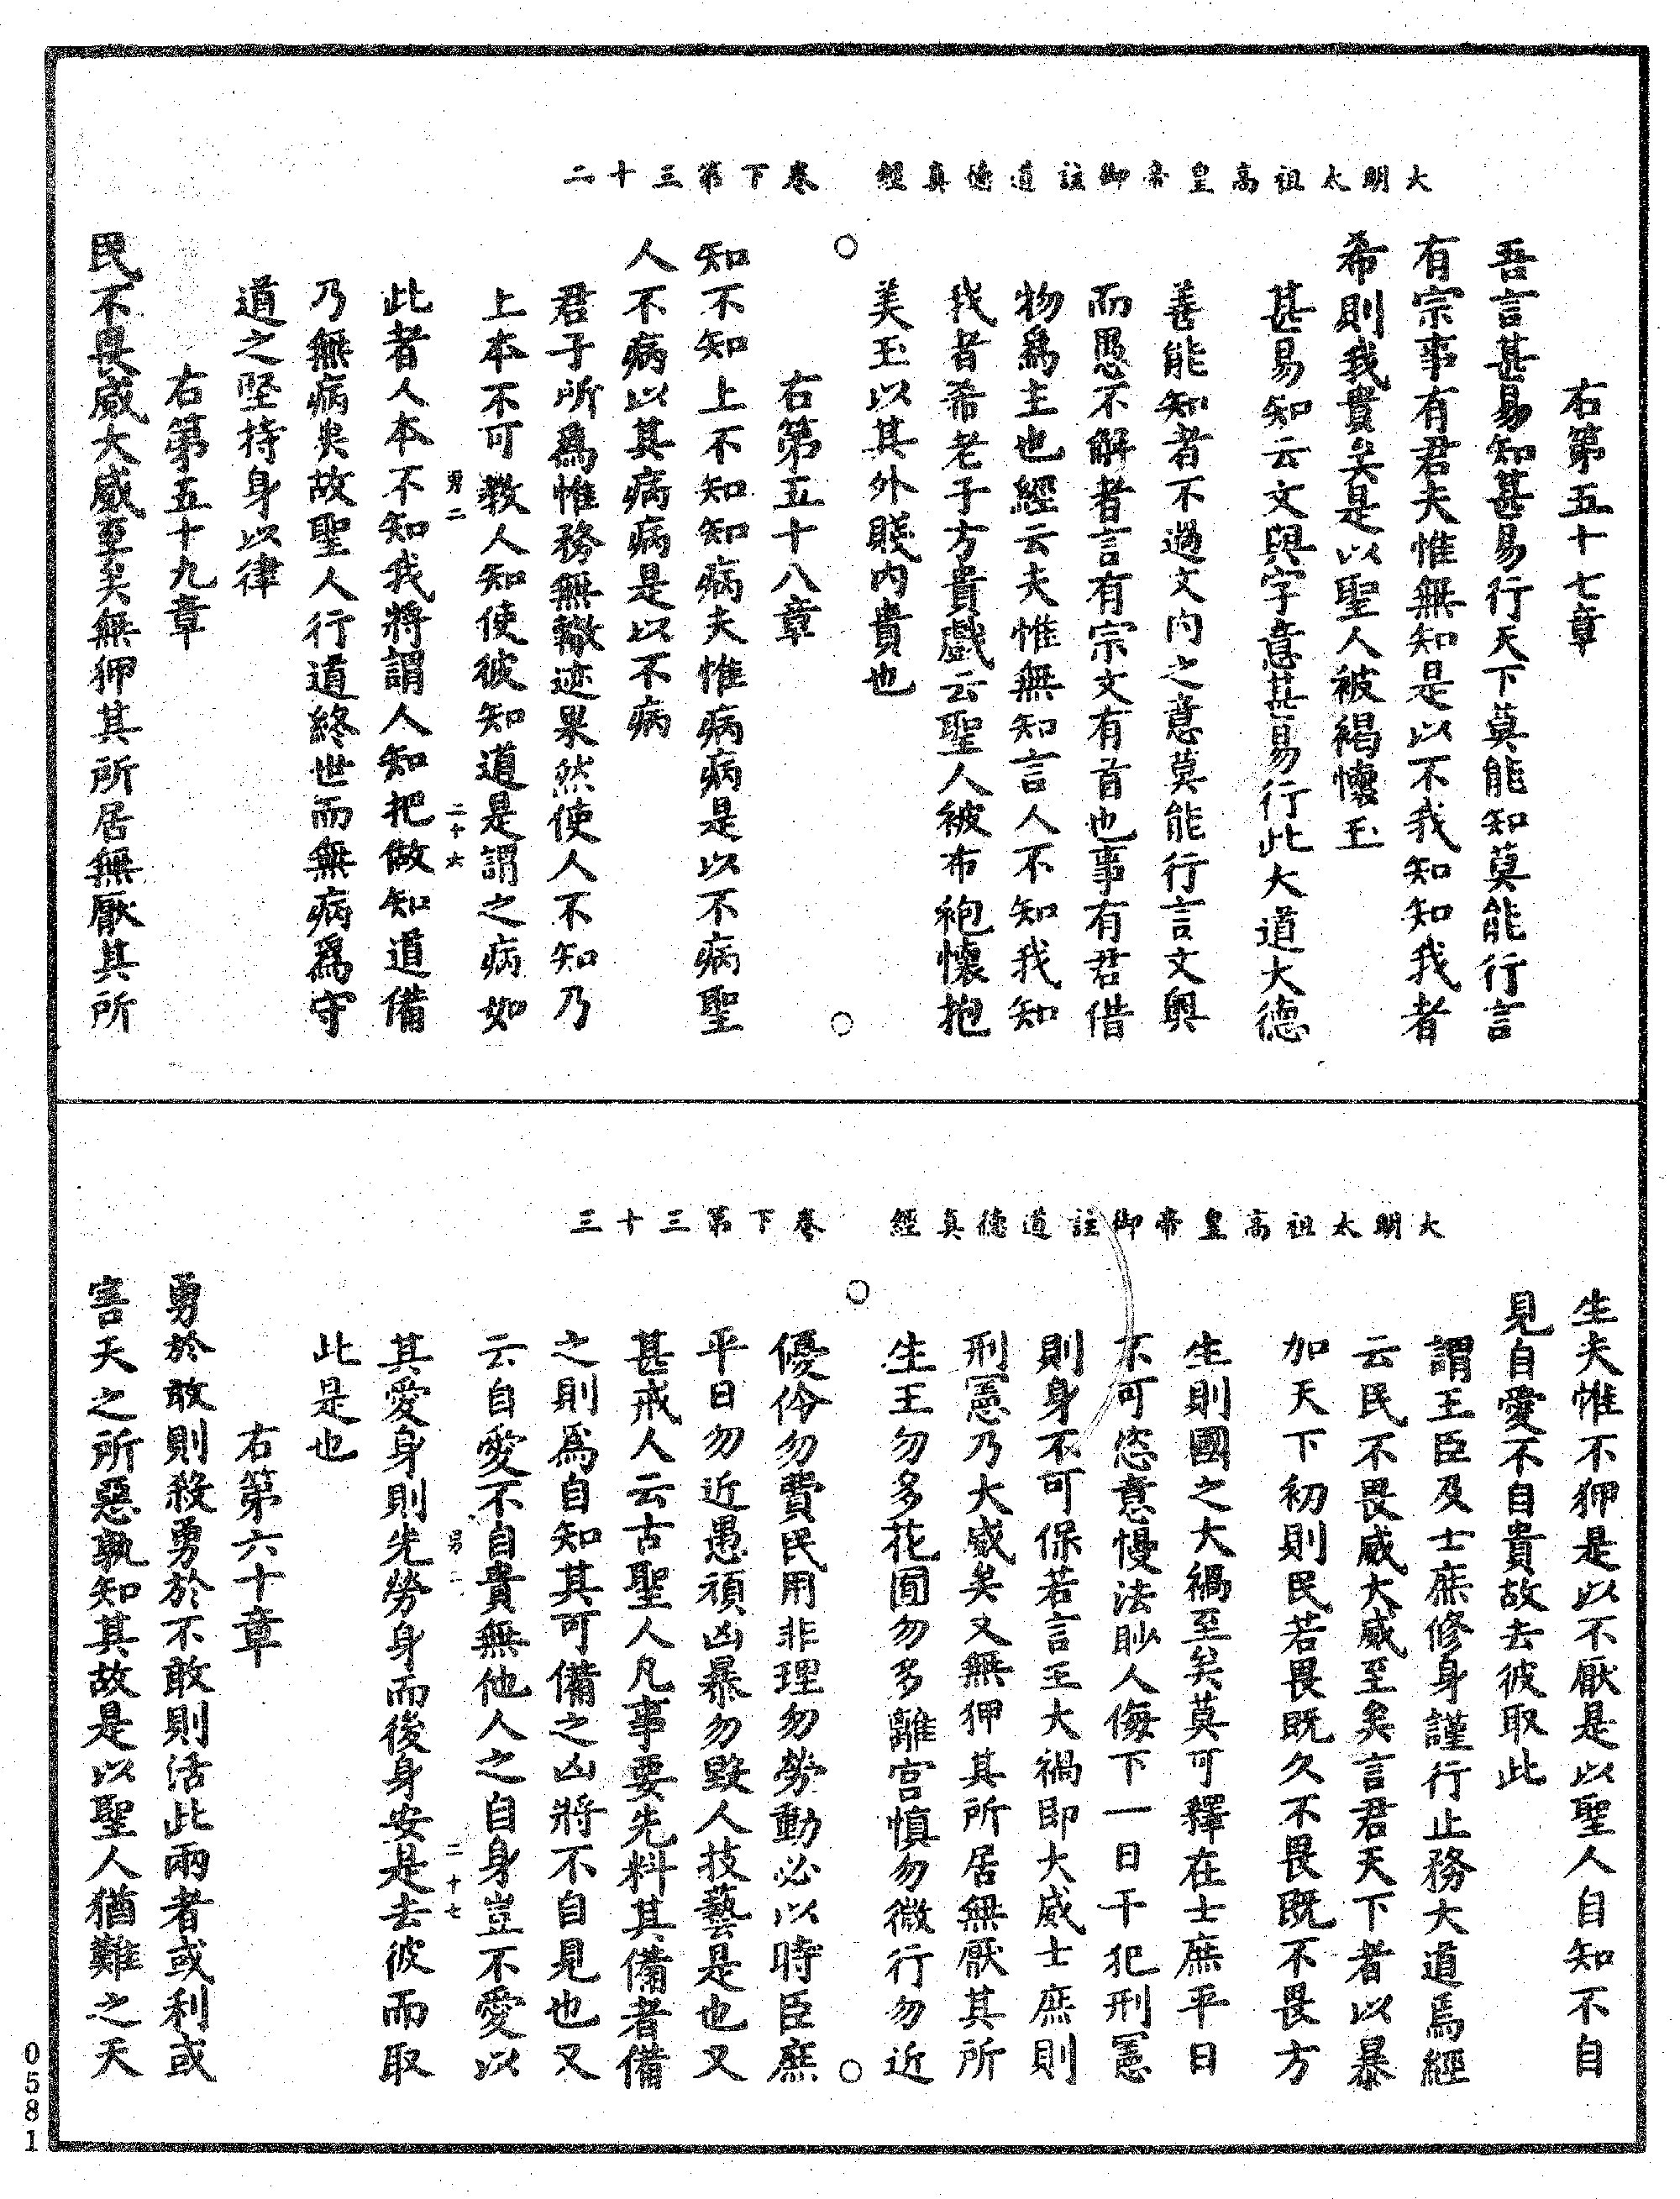 大明太祖高皇帝御註道德真經　卷下第三十二
右第五十七章
吾言甚易知甚易行天下莫能知莫能行言
有宗事有君夫惟無知是以不我知知我者
希則我貴矣是以聖人被褐懷玉
甚易知云文與字意甚易行此大道大德
善能知者不過文內之意莫能行言文奧
而愚不解者言有宗文有首也事有君借
物為主也經云夫惟無知言人不知我知
我者希老子方貴戲云聖人被布袍懷抱
美玉以其外賤內貴也
右第五十八章
知不知上不知知病夫惟病病是以不病聖
人不病以其病病是以不病
君子所為惟務無轍迹果然使人不知乃
上本不可教人知使彼知道是謂之病如
勇二　二十六
此者人本不知我將謂人知把做知道備
乃無病矣故聖人行道終世而無病為守
道之堅持身以律
右第五十九章
民不畏威大威至矣無狎其所居無厭其所
大明太祖高皇帝御註道德真經　卷下第三十三
生夫惟不狎是以不厭是以聖人自知不自
見自愛不自貴故去彼取此
謂王臣及士庶修身謹行止務大道焉經
云民不畏威大威至矣言君天下者以暴
加天下初則民若畏既久不畏既不畏方
生則國之大禍至矣莫可釋在士庶平日
不可恣意慢法眇人侮下一日干犯刑憲
則身不可保若言王大禍即大威士庶則
刑憲乃大威矣又無狎其所居無厭其所
生王勿多花囿勿多離宮慎勿微行勿近
優伶勿費民用非理勿勞動必以時臣庶
平日勿近愚頑凶暴勿毀人技藝是也又
甚戒人云古聖人凡事要先料其備者備
之則為自知其可備之凶將不自見也又
云自愛不自貴無他人之自身豈不愛以
勇二　二十七
其愛身則先勞身而後身安是去彼而取
此是也
右第六十章
勇於敢則殺勇於不敢則活此兩者或利或
害天之所惡孰知其故是以聖人猶難之天
0581